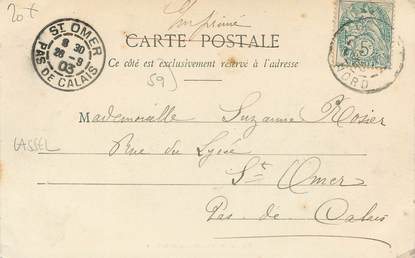 20+
Imprimé
ST OMER
8 30
26-9
03
PAS DE CALAIS
CARTE POSTALE
Ce côté est exclusivement réservé à l'adresse
59)
5
NORD
Mademoiselle Suzanne Rosier
CASSEL
Rue du Lycée
St Omer
Pas-de-Calais